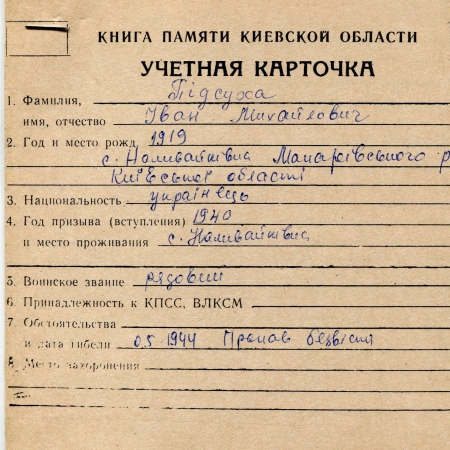 КНИГА ПАМЯТИ КИЕВСКОЙ ОБЛАСТИ
УЧЕТНАЯ КАРТОЧКА
1. Фамилия, Підсуха
имя, отчество Іван Михайлович
2. Год и место рожд. 1919
с. Наливайківка Макарівського р
Київської області
3. Национальность українець
4. Год призыва (вступления) 1940
и место проживания с. Наливайківка
5. Воинское звание рядовий
6. Принадлежность к КПСС, ВЛКСМ
7. Обстоятельства
и дата гибели 05 1944 Пропав безвісти
8. Место захоронения